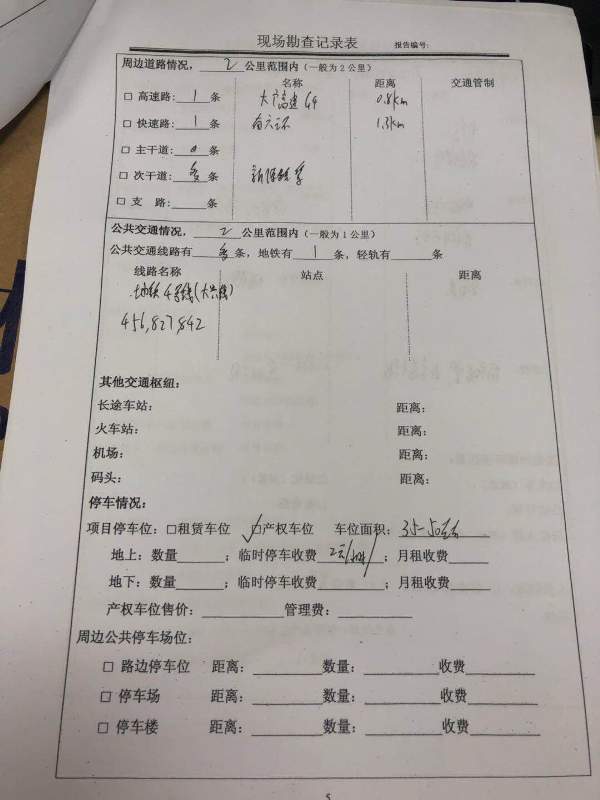 现场勘查记录表 报告编号:
周边道路情况，2公里范围内（一般为2公里）
名称 距离 交通管制
□ 高速路：1条 大广高速 G45 0.8km
□ 快速路：1条 南六环 1.3km
□ 主干道：0条
□ 次干道：多条
□ 支 路：____条
公共交通情况，2公里范围内（一般为1公里）
公共交通线路有多条，地铁有1条，轻轨有____条
线路名称 站点 距离
地铁4号线(大兴线)
456,827,842
其他交通枢纽：
长途车站： 距离：
火车站： 距离：
机场： 距离：
码头： 距离：
停车情况：
项目停车位：□租赁车位 ☑产权车位 车位面积：35-50
地上：数量______；临时停车收费2元/；月租收费______
地下：数量______；临时停车收费______；月租收费______
产权车位售价：__________管理费：__________
周边公共停车场位：
□ 路边停车位 距离：__________数量：__________收费__________
□ 停车场 距离：__________数量：__________收费__________
□ 停车楼 距离：__________数量：__________收费__________
5